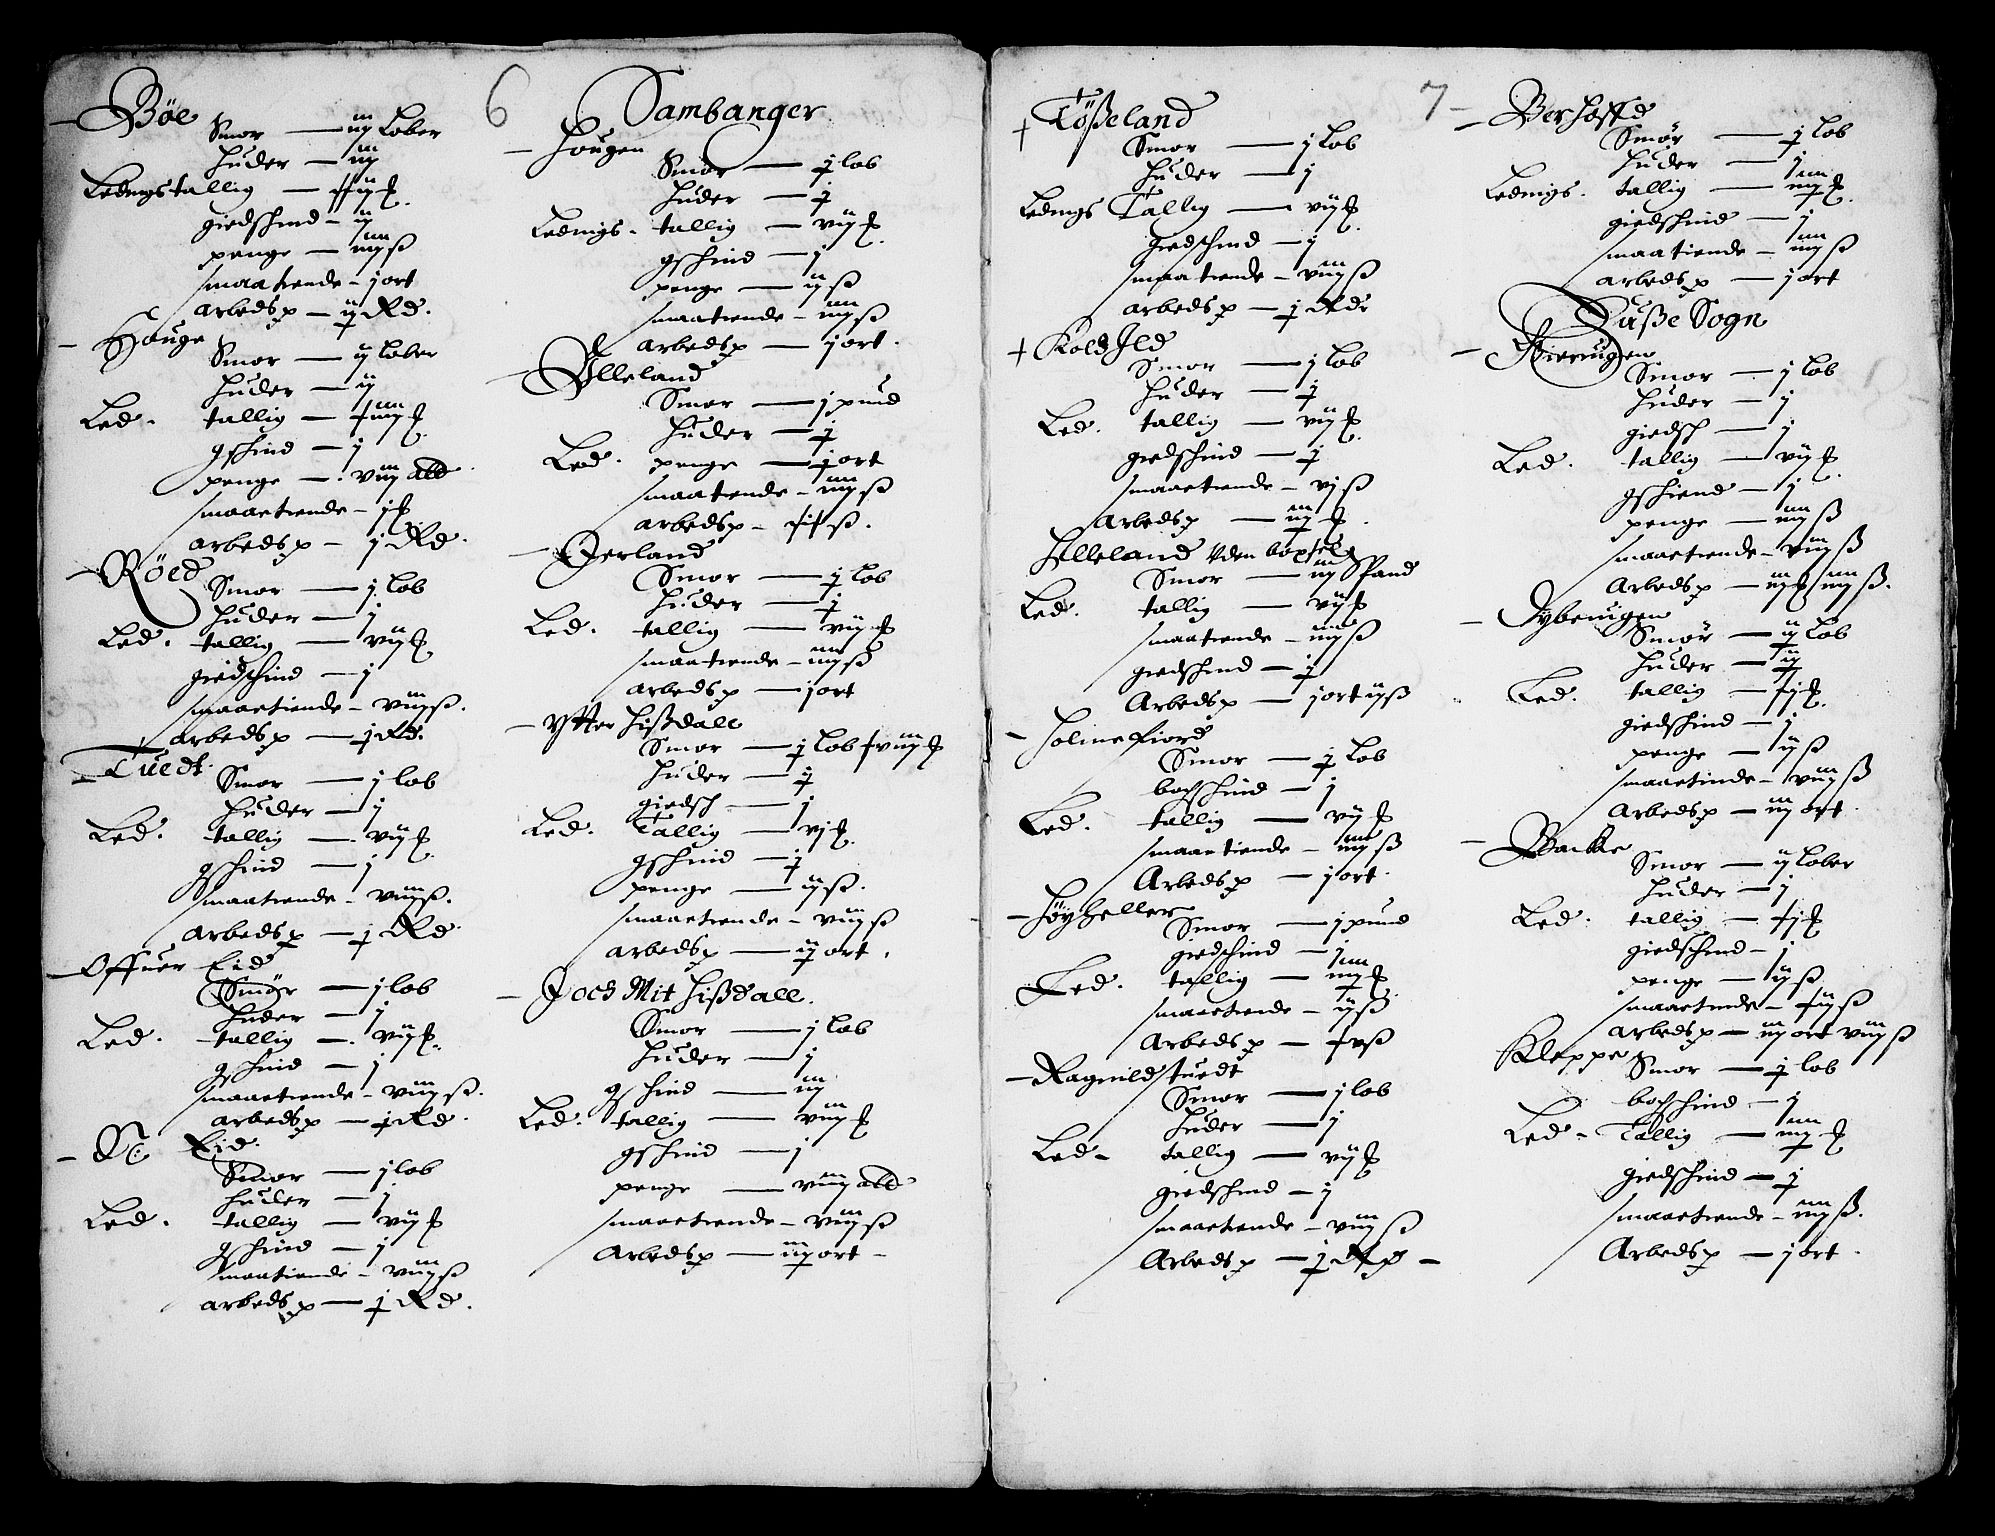 6
Böe
Smör — iij Løber
Huder — iij
Ledings tallig — ij
giedskind — ij
penge — iiij ß
smaatiende — j ort
arbedsp — ij Rd.
Houge
Smör — ij Løber
Huder — ij
Led. tallig
gskind — j
penge — viij alb
smaatiende — j
arbedsp — j Rd.
Röed
Smör — j Løb
Huder — j
Led. tallig — vij
giedskind — j
smaatiende — viij ß.
arbedsp — j Rd.
Tuedt
Smör — j løb
Huder — j
Led. tallig — vij
gskind — j
smaatiende — viij ß.
arbedsp — j Rd.
Offuer Eid
Smör — j løb
Huder — j
Led. tallig — vij
gskind — j
smaatiende — viij ß.
arbedsp — j Rd.
Eid
Smör — j løb
Huder — j
Led. tallig — vij
gskind — j
smaatiende — viij ß
arbedsp — j Rd.
Sambanger
Hougen
Smör — j løb
Huder — j
Ledings. tallig — vij
gskind — j
penge — ij ß
smaatiende — iiij ß
arbedsp — j ort.
Ølleland
Smör — j pund
Huder — j
Led. penge — j ort
smaatiende — iiij ß
arbedsp
Øerland
Smör — j Løb
Huder — j
Led. tallig — vij
smaatiende — iiij ß
arbedsp — j ort
Ytter Hißdall
Smör — j Løb
Huder — ij
giedsk — j
Led. Tallig — vj
gskind — j
penge — ij ß.
smaatiende — viij ß
arbedsp — ij ort.
Joed Mit Hißdall.
Smör — j løb
Huder — j
gskind — iij
Led. tallig — viij
gskind — j
penge — viij alb
smaatiende — viij ß
Arbedsp — iij ort
7
Tößeland
Smör — j Løb
Huder — j
Ledings Tallig — vij
giedskind — j
smaatiende — viij ß
arbedsp — j Rd
Kold Ild
Smör — j løb
Huder — j
Led. tallig — vij
giedskind — j
smaatiende — vj ß
Arbedsp — iij
Helleland Uden böxsel
Smör — iij Spand
Led. tallig — vij
smaatiende — iiij ß
giedskind — j
Arbedsp — j ort ij ß
Holmefiord
Smör — j Løb
bochskind — j
Led. tallig — vij
smaatiende — iiij ß
Arbedsp — j ort.
Höyheller
Smör — j pund
giedskind — j
Led. tallig — iiij
smaatiende — ij ß
Arbedsp
Ragnildstuedt
Smör — j løb
Huder — j
Led. tallig — vij
giedskind — j
smaatiende — viij ß
Arbedsp
Berhoffde
Smör — j løb
Huder — j
Ledings. tallig — iiij
giedskind — j
smaatiende — iiij ß
arbedsp — j ort
Fuße Sogn
Smör — j løb
Huder — j
giedsk — j
Led. tallig — vij
gskiend — j
penge — iiij ß
smaatiende — viij ß
Arbedsp — iij iiij ß.
Dybeuigen
Smör — ij Løb
Huder — ij
Led. tallig
giedskind — j
penge — ij ß
smaatiende — viij ß
Arbedsp — iij ort.
Backe
Smör — ij Løber
Huder — j
Led. tallig
giedskind — j
penge — ij ß
smaatiende
arbedsp — iij ort viij ß
Kleppe
Smör — j løb
bochskind — j
Led. Tallig — iiij
giedskind — j
smaatiende — iiij ß.
Arbedsp — j ort.